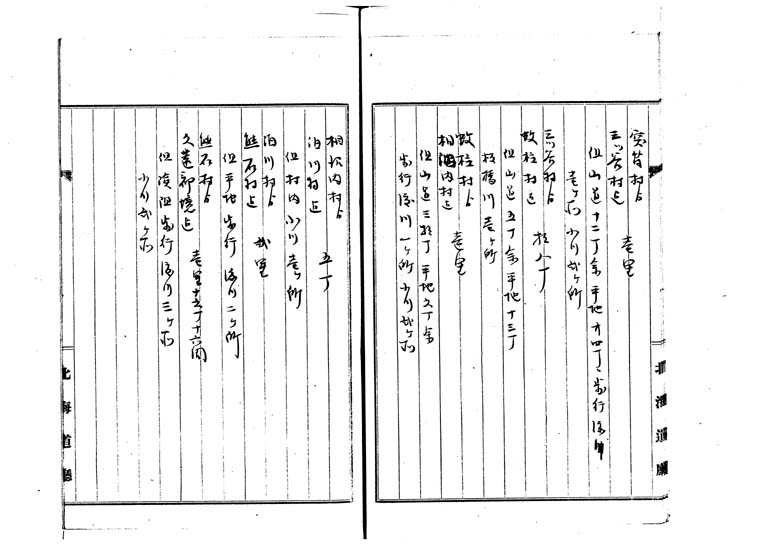 突符村ゟ
三ツ谷村迄 壱里
但山道十二丁余平地廿四丁、歩行渡川
壱ヶ所小川弐ヶ所
三ツ谷村ゟ
蚊柱村迄 拾八丁
但山道五丁余平地十三丁
板橋川壱ヶ所
蚊柱村ゟ
相沼内村迄 壱里
但山道三拾丁平地六丁余
歩行渡川一ヶ所小川弐ヶ所
北海道廳
相沼内村ゟ
泊川村迄 五丁
但村内小川壱ヶ所
泊川村ゟ
熊石村迄 弐里
但平地歩行渡川二ヶ所
熊石村ゟ
久遠郡境迄 壱里十五丁十六間
但嶮阻歩行渡川三ヶ所
小川弐ヶ所
北海道廳